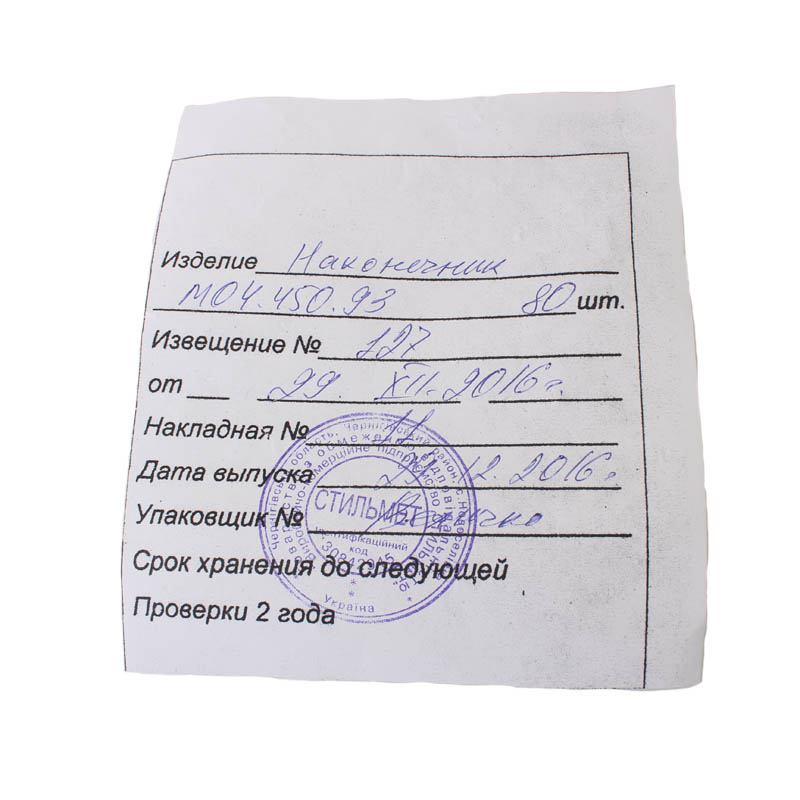 Изделие Наконечник
МО4.450.93 80 шт.
Извещение № 127
от 29. XII. 2016 г.
Накладная № 11
Дата выпуска 29.12.2016г.
Упаковщик №
Срок хранения до следующей
Проверки 2 года
Чернігівська область, Чернігівський район, с.
з обмеженою відповідальністю
підприємство
СТИЛЬМЕТ
Ідентифікаційний
код
Україна